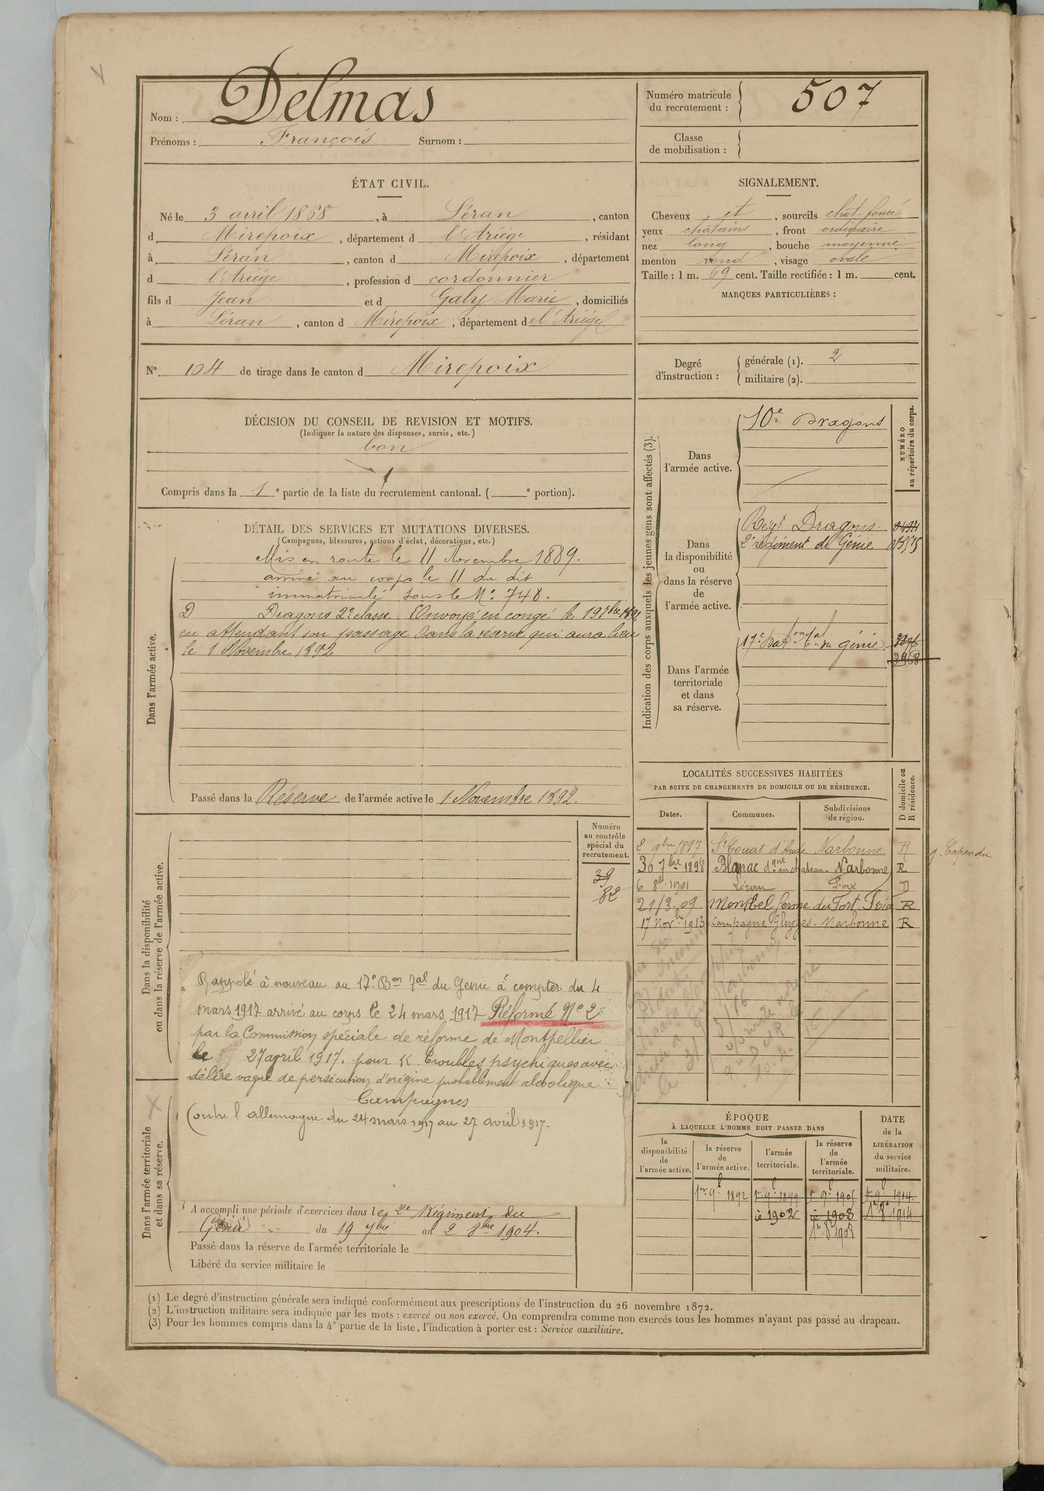 Nom : Delmas
Prénoms : François Surnom :
Numéro matricule du recrutement : 507
Classe de mobilisation :
ÉTAT CIVIL.
Né le 3 avril 1868, à Léran, canton
d Mirepoix, département d l'Ariège, résidant
à Léran, canton d Mirepoix, département
d l'Ariège, profession d cordonnier
fils d Jean et d Galy Marie, domiciliés
à Léran, canton d Mirepoix, département de l'Ariège
N° 104 de tirage dans le canton d Mirepoix
SIGNALEMENT.
Cheveux et, sourcils chat-foncé
yeux châtains, front ordinaire
nez long, bouche moyenne
menton rond, visage ovale
Taille : 1 m. 69 cent. Taille rectifiée : 1 m. cent.
MARQUES PARTICULIÈRES :
Degré d'instruction : générale (1). 2
militaire (2).
DÉCISION DU CONSEIL DE REVISION ET MOTIFS.
(Indiquer la nature des dispenses, sursis, etc.)
bon
Compris dans la 1e partie de la liste du recrutement cantonal. ( e portion).
DÉTAIL DES SERVICES ET MUTATIONS DIVERSES.
(Campagnes, blessures, actions d'éclat, décorations, etc.)
Dans l'armée active.
Mis en route le 11 Novembre 1889.
arrivé au corps le 11 du dit
immatriculé sous le N° 748.
D Dragons 2e classe. Envoyé en congé le
en attendant son passage dans la réserve qui aura lieu
le 1 Novembre 1892
Passé dans la Réserve de l'armée active le 1 Novembre 1892.
Indication des corps auxquels les jeunes gens sont affectés (3).
NUMÉRO au répertoire du corps.
Dans l'armée active.
10e Dragons
Dans la disponibilité ou dans la réserve de l'armée active.
Regt Dragons
2e régiment de Génie
Dans l'armée territoriale et dans sa réserve.
17e Bat on tal du génie
LOCALITÉS SUCCESSIVES HABITÉES
PAR SUITE DE CHANGEMENTS DE DOMICILE OU DE RÉSIDENCE.
Dates. Communes. Subdivisions de région. D domicile ou R résidence.
2 9bre 1897 St Couat d'Aude Narbonne R g. Capendu
30 7bre 1898 Narbonne R
6 1901 Léran Foix D
21/3-09 Montbel ferme du Fort Foix R
17 Novre 1913 Campagne Narbonne R
Dans la disponibilité ou dans la réserve de l'armée active.
Numéro au contrôle spécial du recrutement.
39
82
Rappelé à nouveau au 17e Bon Tal du Génie à compter du 4
mars 1917 arrivé au corps le 24 mars 1917 Réformé N° 2
par la Commission spéciale de réforme de Montpellier
le 27 avril 1917. pour Troubles psychiques avec
délire vague de persécution d'origine probablement alcoolique
Campagnes
Contre l'allemagne du 24 mars 1917 au 27 avril 1917.
Dans l'armée territoriale et dans sa réserve.
A accompli une période d'exercices dans le 2e Régiment du
Génie du 19 7bre au 2 8bre 1904.
Passé dans la réserve de l'armée territoriale le
Libéré du service militaire le
ÉPOQUE
À LAQUELLE L'HOMME DOIT PASSER DANS
la disponibilité de l'armée active.
la réserve de l'armée active.
l'armée territoriale.
la réserve de l'armée territoriale.
DATE de la LIBÉRATION du service militaire.
1er 9e 1892 1er 9e 1899 1er 9e 1905 1er 9e 1914
1902 1908
(1) Le degré d'instruction générale sera indiqué conformément aux prescriptions de l'instruction du 26 novembre 1872.
(2) L'instruction militaire sera indiquée par les mots : exercé ou non exercé. On comprendra comme non exercés tous les hommes n'ayant pas passé au drapeau.
(3) Pour les hommes compris dans la 4e partie de la liste, l'indication à porter est : Service auxiliaire.